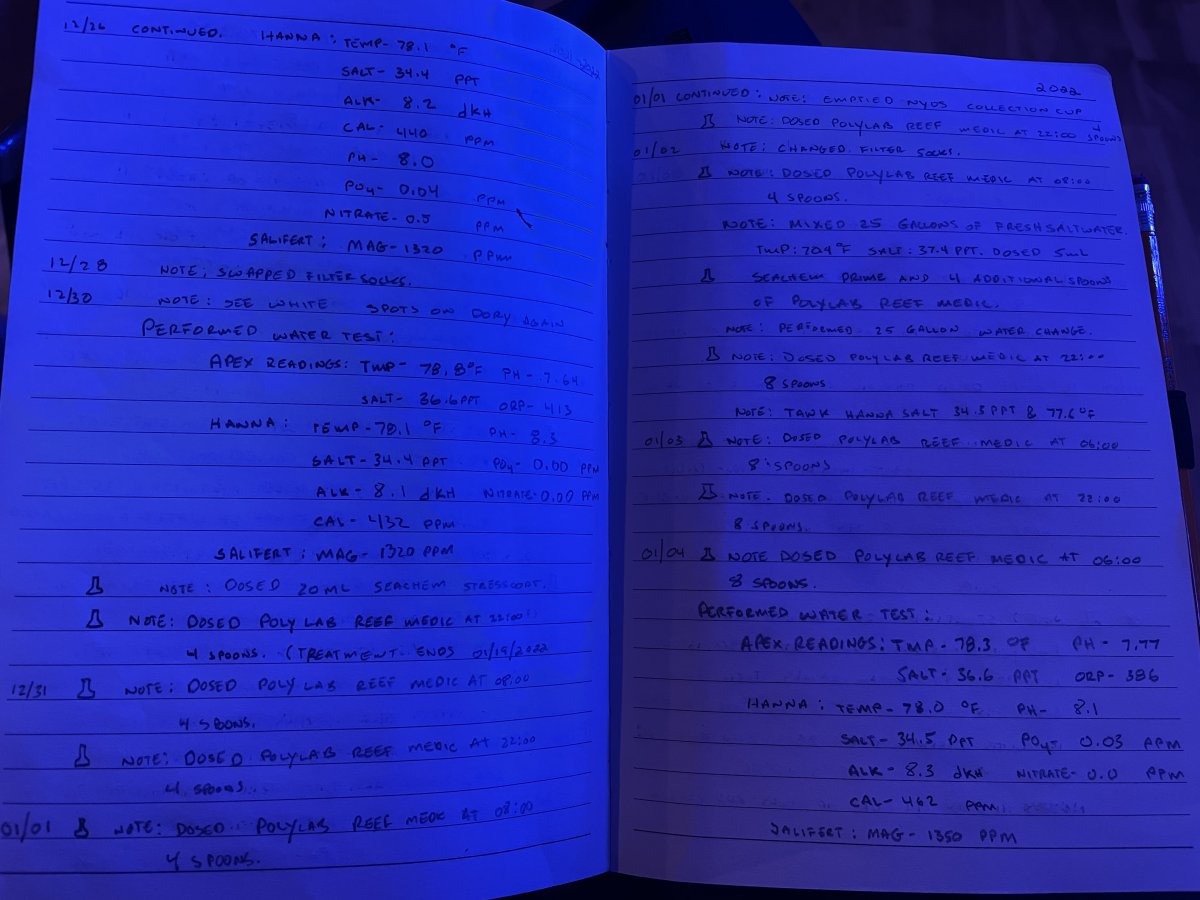 12/26 CONTINUED. HANNA: TEMP- 78.1 °F
SALT- 34.4 PPT
ALK- 8.2 dKH
CAL- 440 PPM
PH- 8.0
PO4- 0.04 PPM
NITRATE- 0.5 PPM
SALIFERT: MAG- 1320 PPM
12/28 NOTE: SWAPPED FILTER SOCKS.
12/30 NOTE: SEE WHITE SPOTS ON DORY AGAIN
PERFORMED WATER TEST:
APEX READINGS: TMP- 78.8°F PH- 7.64
SALT- 36.6 PPT ORP- 413
HANNA: TEMP- 78.1 °F PH- 8.3
SALT- 34.4 PPT PO4- 0.00 PPM
ALK- 8.1 dKH NITRATE- 0.00 PPM
CAL- 432 PPM
SALIFERT: MAG- 1320 PPM
NOTE: DOSED 20ML SEACHEM STRESSCOAT.
NOTE: DOSED POLY LAB REEF MEDIC AT 22:00
4 SPOONS. (TREATMENT ENDS 01/19/2022
12/31 NOTE: DOSED POLY LAB REEF MEDIC AT 08:00
4 SPOONS.
NOTE: DOSED POLYLAB REEF MEDIC AT 22:00
4 SPOONS.
01/01 NOTE: DOSED POLYLAB REEF MEDIC AT 08:00
4 SPOONS.
2022
01/01 CONTINUED: NOTE: EMPTIED NYOS COLLECTION CUP
NOTE: DOSED POLYLAB REEF MEDIC AT 22:00 4 SPOONS
01/02 NOTE: CHANGED FILTER SOCKS.
NOTE: DOSED POLYLAB REEF MEDIC AT 08:00
4 SPOONS.
NOTE: MIXED 25 GALLONS OF FRESH SALTWATER.
TMP: 70.4°F SALT: 37.4 PPT. DOSED 5mL
SEACHEM PRIME AND 4 ADDITIONAL SPOONS
OF POLYLAB REEF MEDIC.
NOTE: PERFORMED 25 GALLON WATER CHANGE.
NOTE: DOSED POLYLAB REEF MEDIC AT 22:00
8 SPOONS
NOTE: TANK HANNA SALT 34.5 PPT & 77.6°F
01/03 NOTE: DOSED POLYLAB REEF MEDIC AT 06:00
8 SPOONS
NOTE. DOSED POLYLAB REEF MEDIC AT 22:00
8 SPOONS.
01/04 NOTE DOSED POLYLAB REEF MEDIC AT 06:00
8 SPOONS.
PERFORMED WATER TEST:
APEX READINGS: TMP- 78.3 °F PH- 7.77
SALT- 36.6 PPT ORP- 386
HANNA: TEMP- 78.0 °F PH- 8.1
SALT- 34.5 PPT PO4- 0.03 PPM
ALK- 8.3 dKH NITRATE- 0.0 PPM
CAL- 462 PPM
SALIFERT: MAG- 1350 PPM